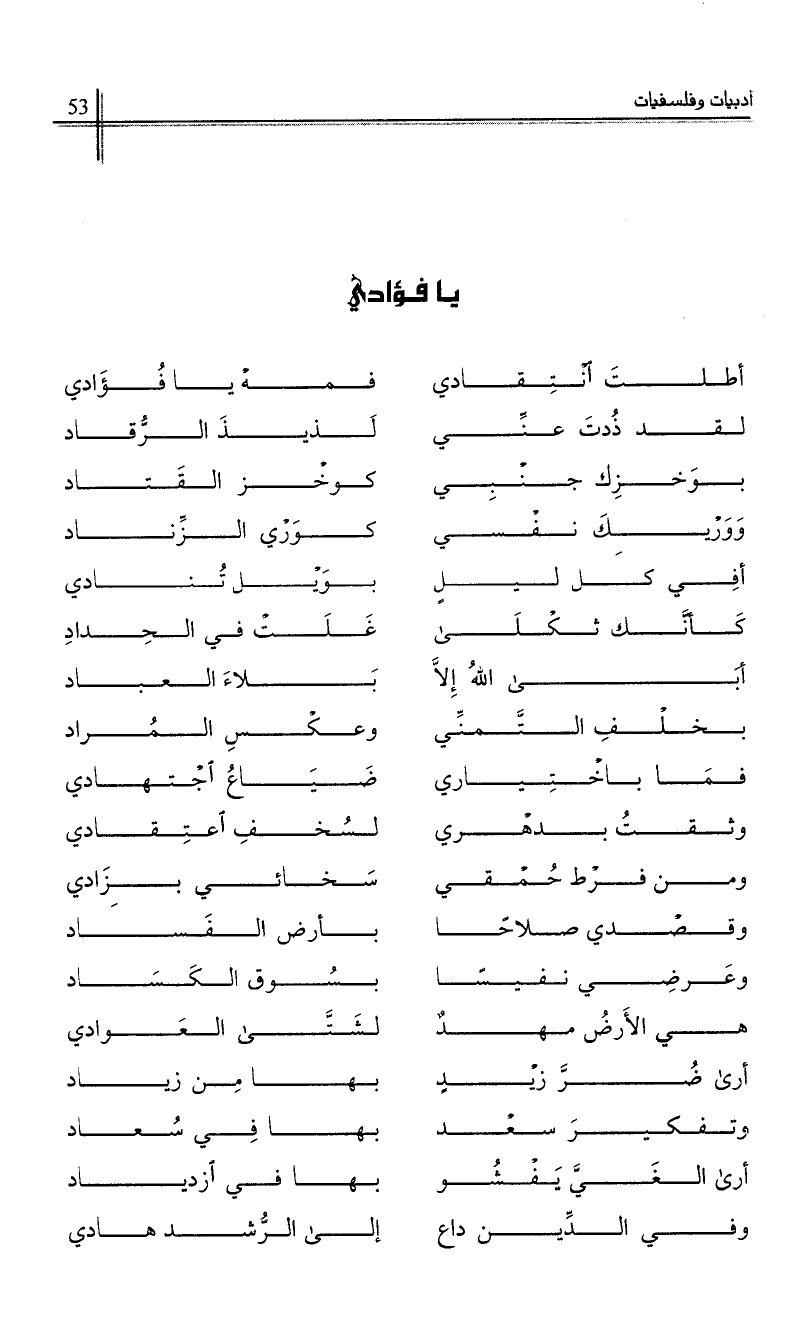 أدبيات وفلسفيات
53
يا فؤادي
أطلتَ ٱنْتِقادي فمهْ يا فُؤَادي
لقد ذُدتَ عنِّي لَذيذَ الرُّقاد
بوَخزِك جنْبِي كوخْز القَتاد
وَوَرْيكَ نفْسي كوَرْي الزِّناد
أفِي كل ليلٍ بوَيْل تُنادي
كَأنَّك ثكْلَى غَلَتْ في الحِدادِ
أبَى اللهُ إلاَّ بَلاءَ العباد
بخلْفِ التَّمنِّي وعكْسِ المُراد
فمَا باخْتِياري ضَيَاعُ ٱجْتهادي
وثقتُ بدهْري لسُخفِ ٱعتِقادي
ومن فرْط حُمْقي سَخائي بزَادي
وقصْدي صلاحًا بأرض الفَساد
وعَرضِي نفيسًا بسُوق الكَسَاد
هي الأَرضُ مهدٌ لشَتَّى العَوادي
أرىٰ ضُرَّ زيْدٍ بها مِن زياد
وتفكيرَ سعْد بها فِي سُعاد
أرىٰ الغَيَّ يَفْشُو بها في ٱزدياد
وفي الدِّين داع إلىٰ الرُّشد هادي